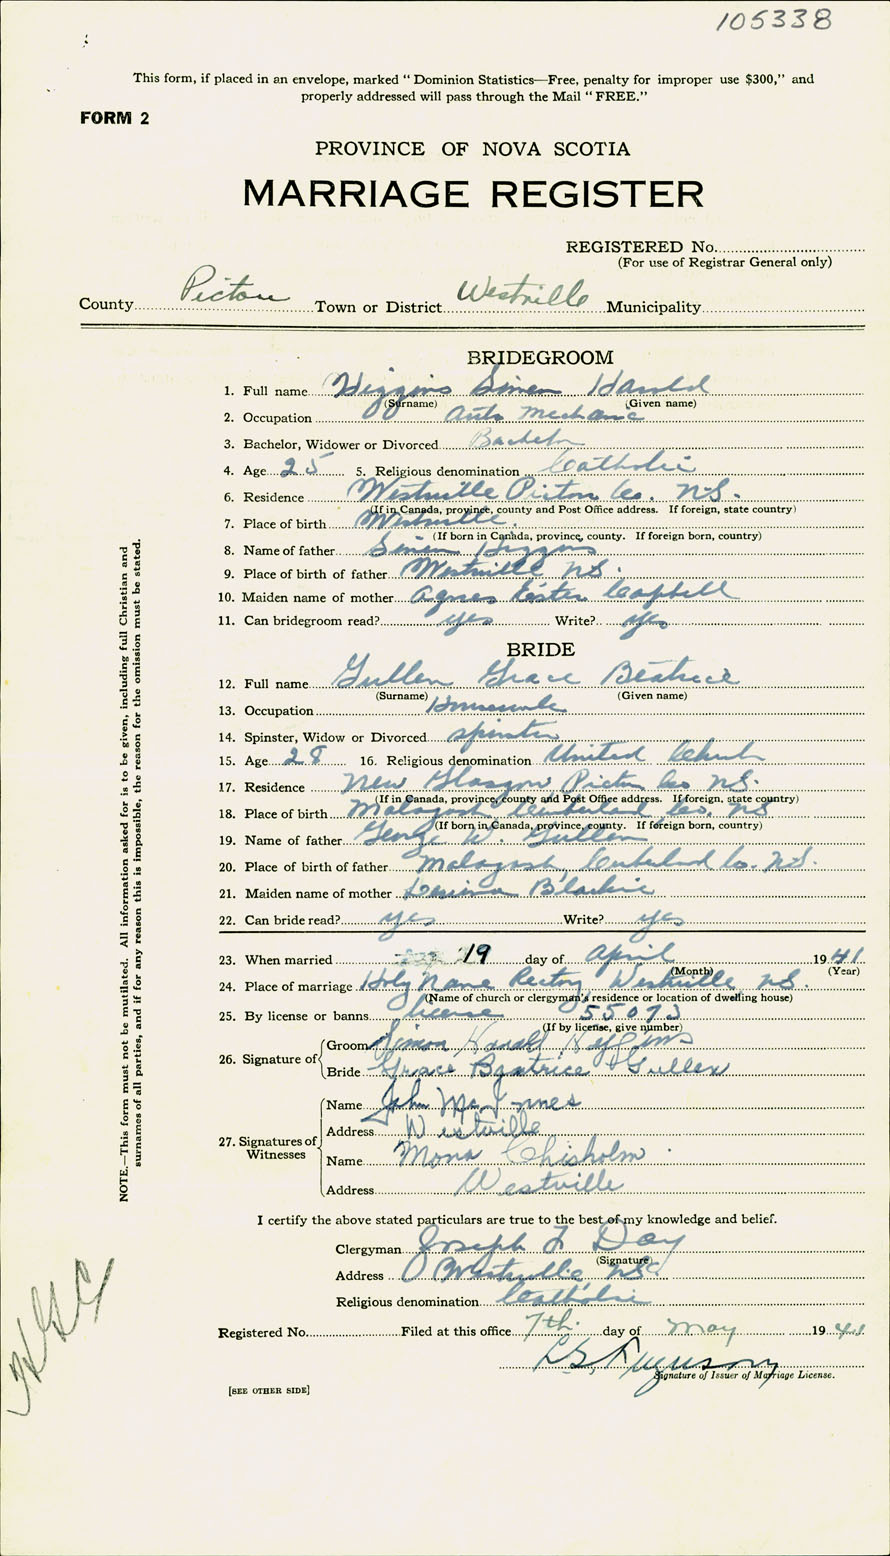 105338
This form, if placed in an envelope, marked “ Dominion Statistics—Free, penalty for improper use $300,” and
properly addressed will pass through the Mail “ FREE.”
FORM 2
PROVINCE OF NOVA SCOTIA
MARRIAGE REGISTER
REGISTERED No.
(For use of Registrar General only)
County Pictou Town or District Westville Municipality
BRIDEGROOM
1. Full name Higgins Simon Harold
(Surname) (Given name)
2. Occupation Auto Mechanic
3. Bachelor, Widower or Divorced Bachelor
4. Age 25 5. Religious denomination Catholic
6. Residence Westville Pictou Co. N.S.
(If in Canada, province, county and Post Office address. If foreign, state country)
7. Place of birth Westville.
(If born in Canada, province, county. If foreign born, country)
8. Name of father Simon Higgins
9. Place of birth of father Westville N.S.
10. Maiden name of mother Agnes Ester
11. Can bridegroom read? yes Write? yes
BRIDE
12. Full name Gullen Grace Beatrice
(Surname) (Given name)
13. Occupation
14. Spinster, Widow or Divorced spinster
15. Age 28 16. Religious denomination United Church
17. Residence New Glasgow Pictou Co N.S.
(If in Canada, province, county and Post Office address. If foreign, state country)
18. Place of birth Malagash Cumberland Co. NS
(If born in Canada, province, county. If foreign born, country)
19. Name of father George W. Gullen
20. Place of birth of father Malagash, Cumberland Co. N.S.
21. Maiden name of mother Blackie
22. Can bride read? yes Write? yes
23. When married 19 day of April 1941
(Month) (Year)
24. Place of marriage Holy Name Rectory Westville N.S.
(Name of church or clergyman's residence or location of dwelling house)
25. By license or banns license 55073
(If by license, give number)
26. Signature of
Groom Simon Harold Higgins
Bride Grace Beatrice Gullen
27. Signatures of Witnesses
Name John McInnes
Address Westville
Name Mona Chisholm
Address Westville
I certify the above stated particulars are true to the best of my knowledge and belief.
Clergyman Joseph F Day
(Signature)
Address Westville NS
Religious denomination Catholic
Registered No. Filed at this office 7th. day of May 1941
L.G. Ferguson
Signature of Issuer of Marriage License.
[SEE OTHER SIDE]
NOTE.—This form must not be mutilated. All information asked for is to be given, including full Christian and
surnames of all parties, and if for any reason this is impossible, the reason for the omission must be stated.